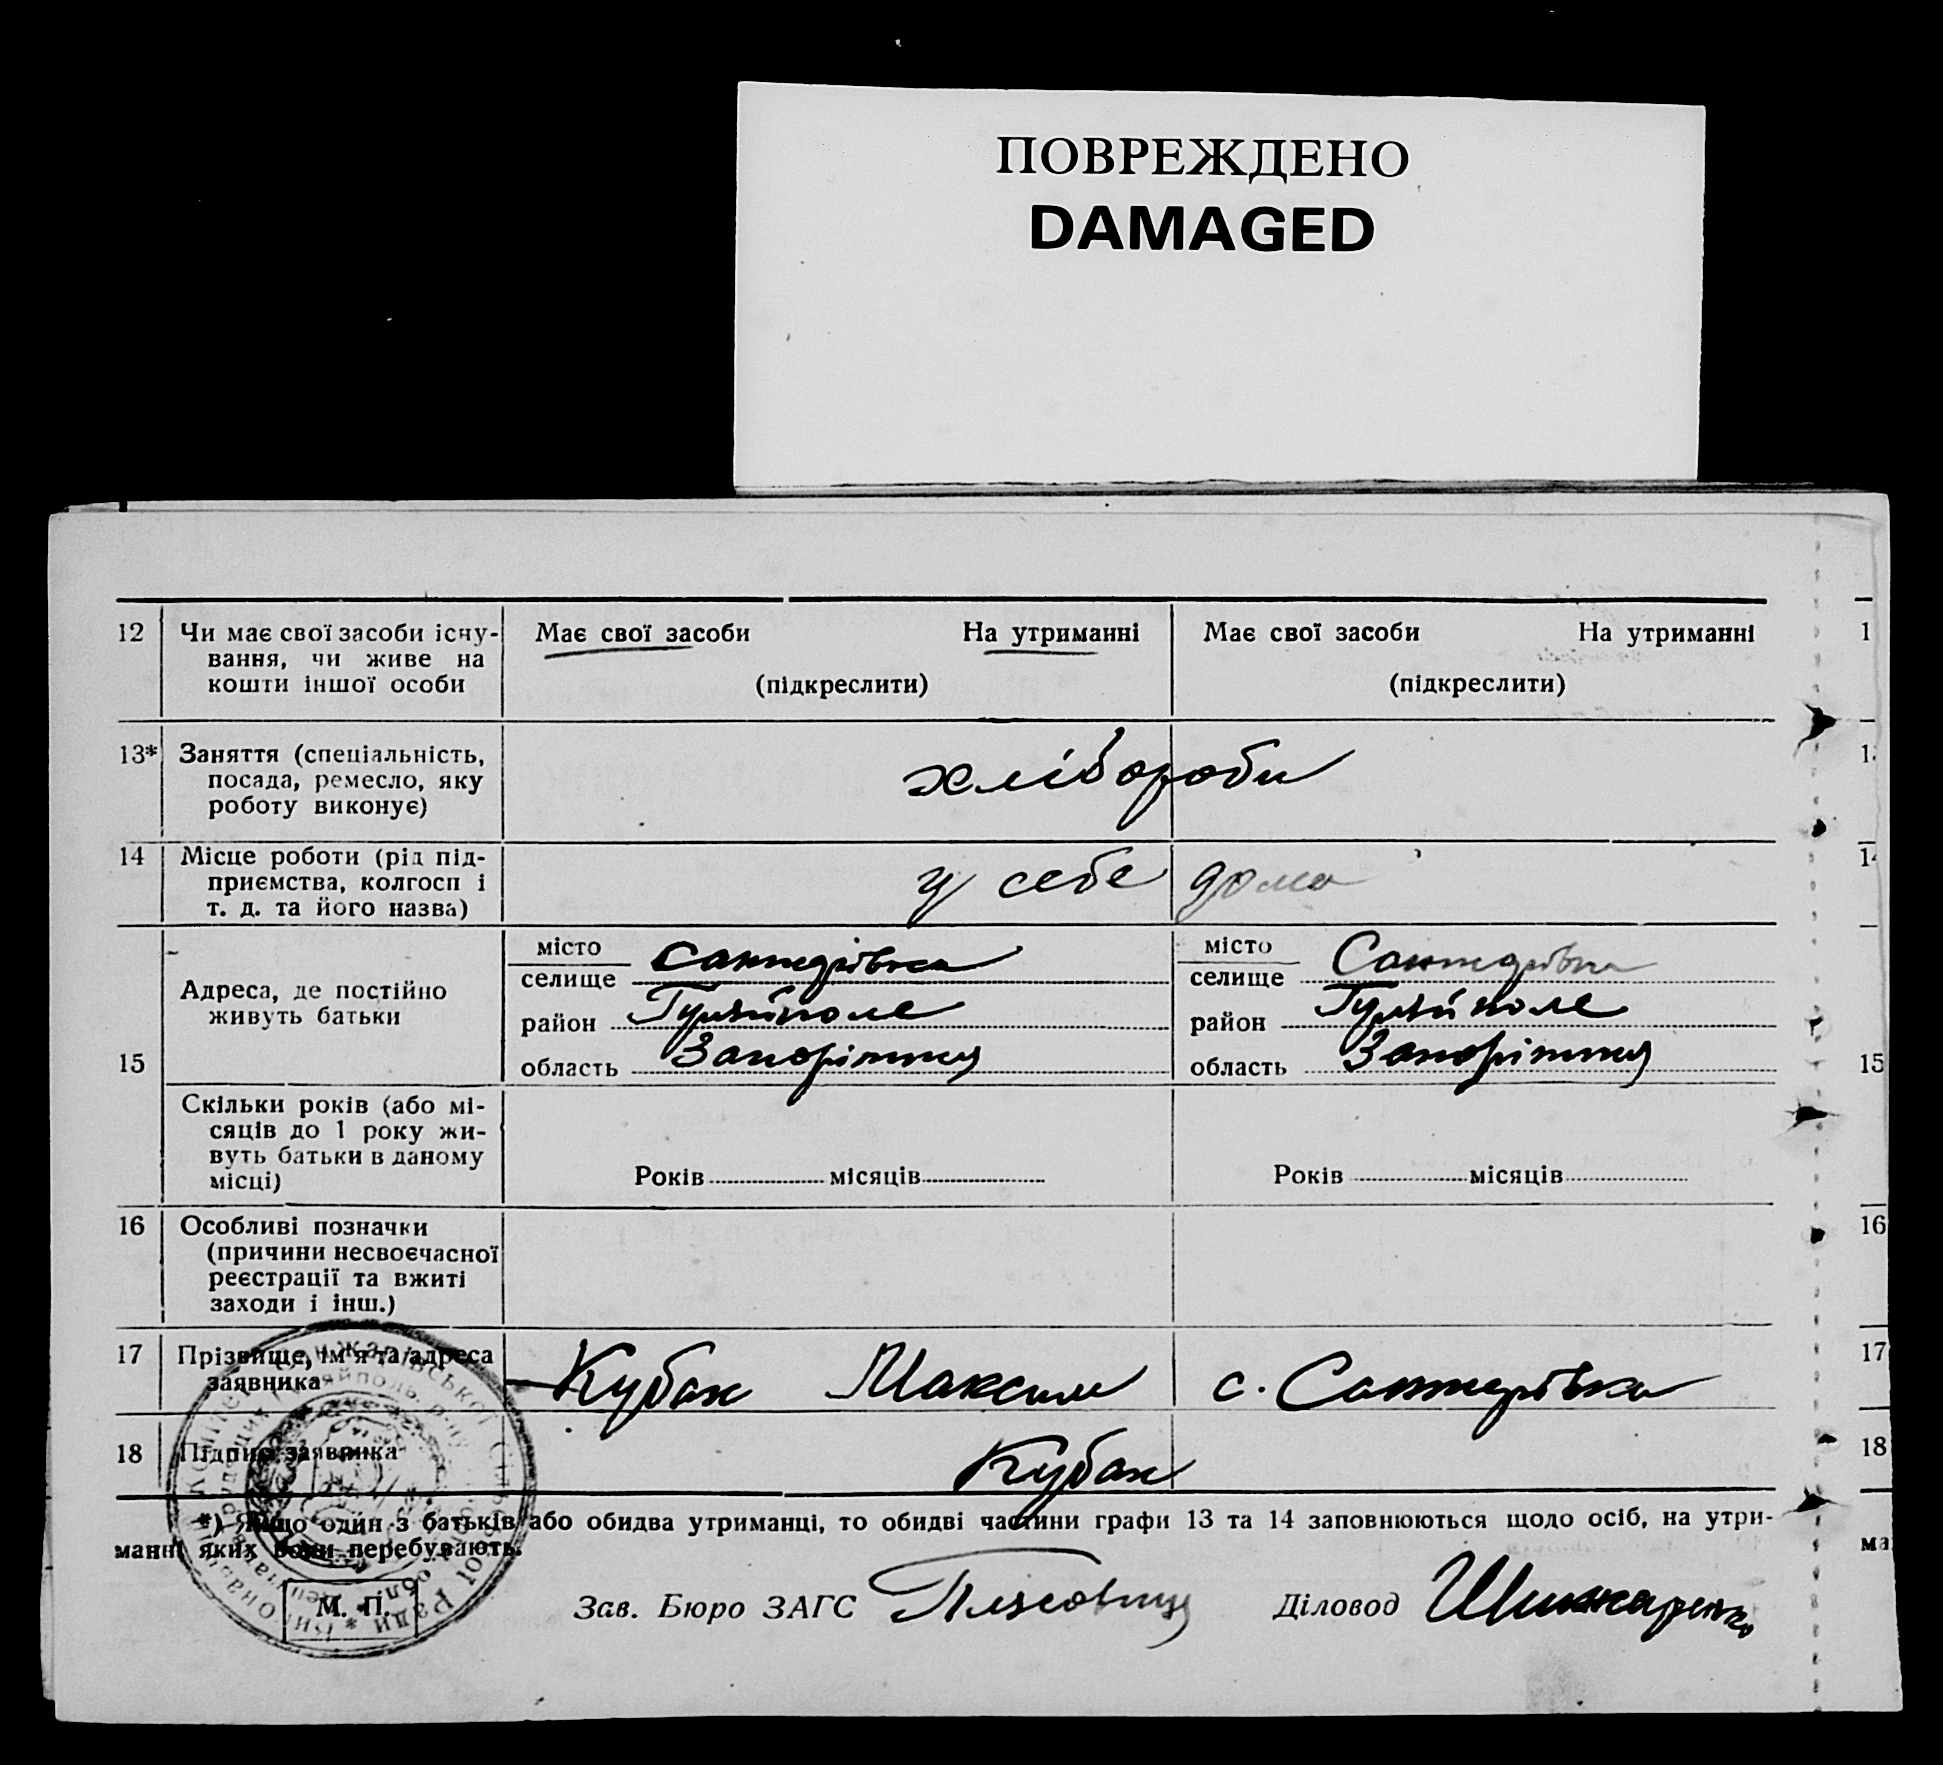 ПОВРЕЖДЕНО
DAMAGED
12 Чи має свої засоби існу-
вання, чи живе на
кошти іншої особи
Має свої засоби На утриманні
(підкреслити)
Має свої засоби На утриманні
(підкреслити)
1
13* Заняття (спеціальність,
посада, ремесло, яку
роботу виконує)
хлібороби
13
14 Місце роботи (рід під-
приємства, колгосп і
т. д. та його назва)
у себе дома
14
15 Адреса, де постійно
живуть батьки
місто
селище Санжарівка
район Гуляйполе
область Запоріжжя
місто
селище Санжарівка
район Гуляйполе
область Запоріжжя
15
Скільки років (або мі-
сяців до 1 року жи-
вуть батьки в даному
місці)
Років місяців
Років місяців
16 Особливі позначки
(причини несвоєчасної
реєстрації та вжиті
заходи і інш.)
16
17 Прізвище, ім'я та адреса
заявника
Кубак Максим с. Санжарівка
17
18 Підпис заявника
Кубак
18
*) Якщо один з батьків або обидва утриманці, то обидві частини графи 13 та 14 заповнюються щодо осіб, на утри-
манні яких вони перебувають.
ма
М. П.
Зав. Бюро ЗАГС
Діловод Шинкаренко